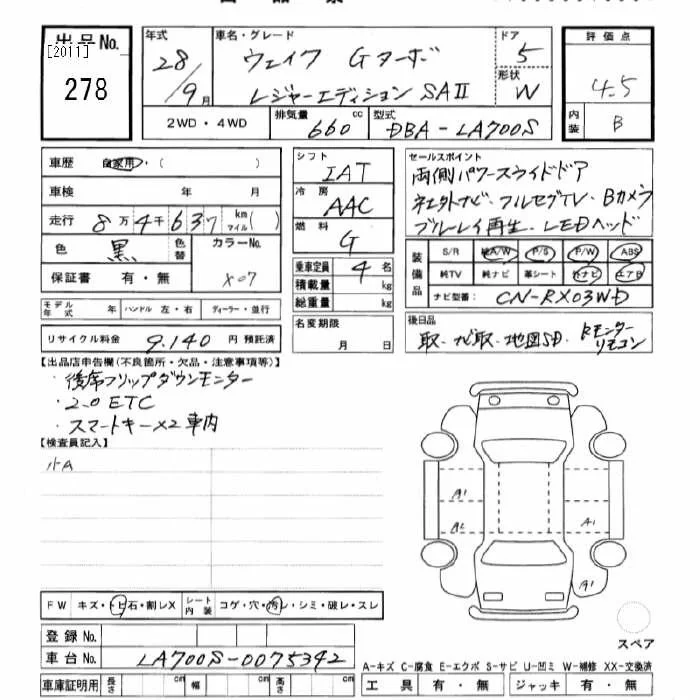 出品No.
[2011]
278
年式
28/9月
車名・グレード
ウェイク Gターボ
レジャーエディション SAⅡ
ドア
5
形状
W
評価点
4.5
内装
B
2WD・4WD
排気量 660 cc
型式 DBA-LA700S
車歴 自家用・( )
車検 年 月
走行 8万4千637 km マイル( )
色 黒
色替
カラーNo.
X07
保証書 有・無
モデル年式
ハンドル 左・右
ディーラー・並行
リサイクル料金 9,140 円 預託済
シフト
IAT
冷房
AAC
燃料
G
乗車定員 4 名
積載量 kg
総重量 kg
名変期限
月 日
セールスポイント
両側パワースライドドア
社外ナビ・フルセグTV・Bカメラ
ブルーレイ再生・LEDヘッド
装備品
S/R 純A/W P/S P/W ABS
純TV 純ナビ 革シート 外ナビ エアB
ナビ型番: CN-RX03WD
後日品
取・ナビ取・地図SD・Rモニターリモコン
【出品店申告欄(不良箇所・欠品・注意事項等)】
・後席フリップダウンモニター
・2.0 ETC
・スマートキー×2 車内
【検査員記入】
小A
A1
A2
A1
A1
FW キズ・トビ石・割レX
シート内装 コゲ・穴・汚レ・シミ・破レ・スレ
スペア
登録No.
車台No. LA700S-0075342
A-キズ C-腐食 E-エクボ S-サビ U-凹ミ W-補修 XX-交換済
車庫証明用 長さ cm 幅 cm 高さ cm
工具 有・無 ジャッキ 有・無